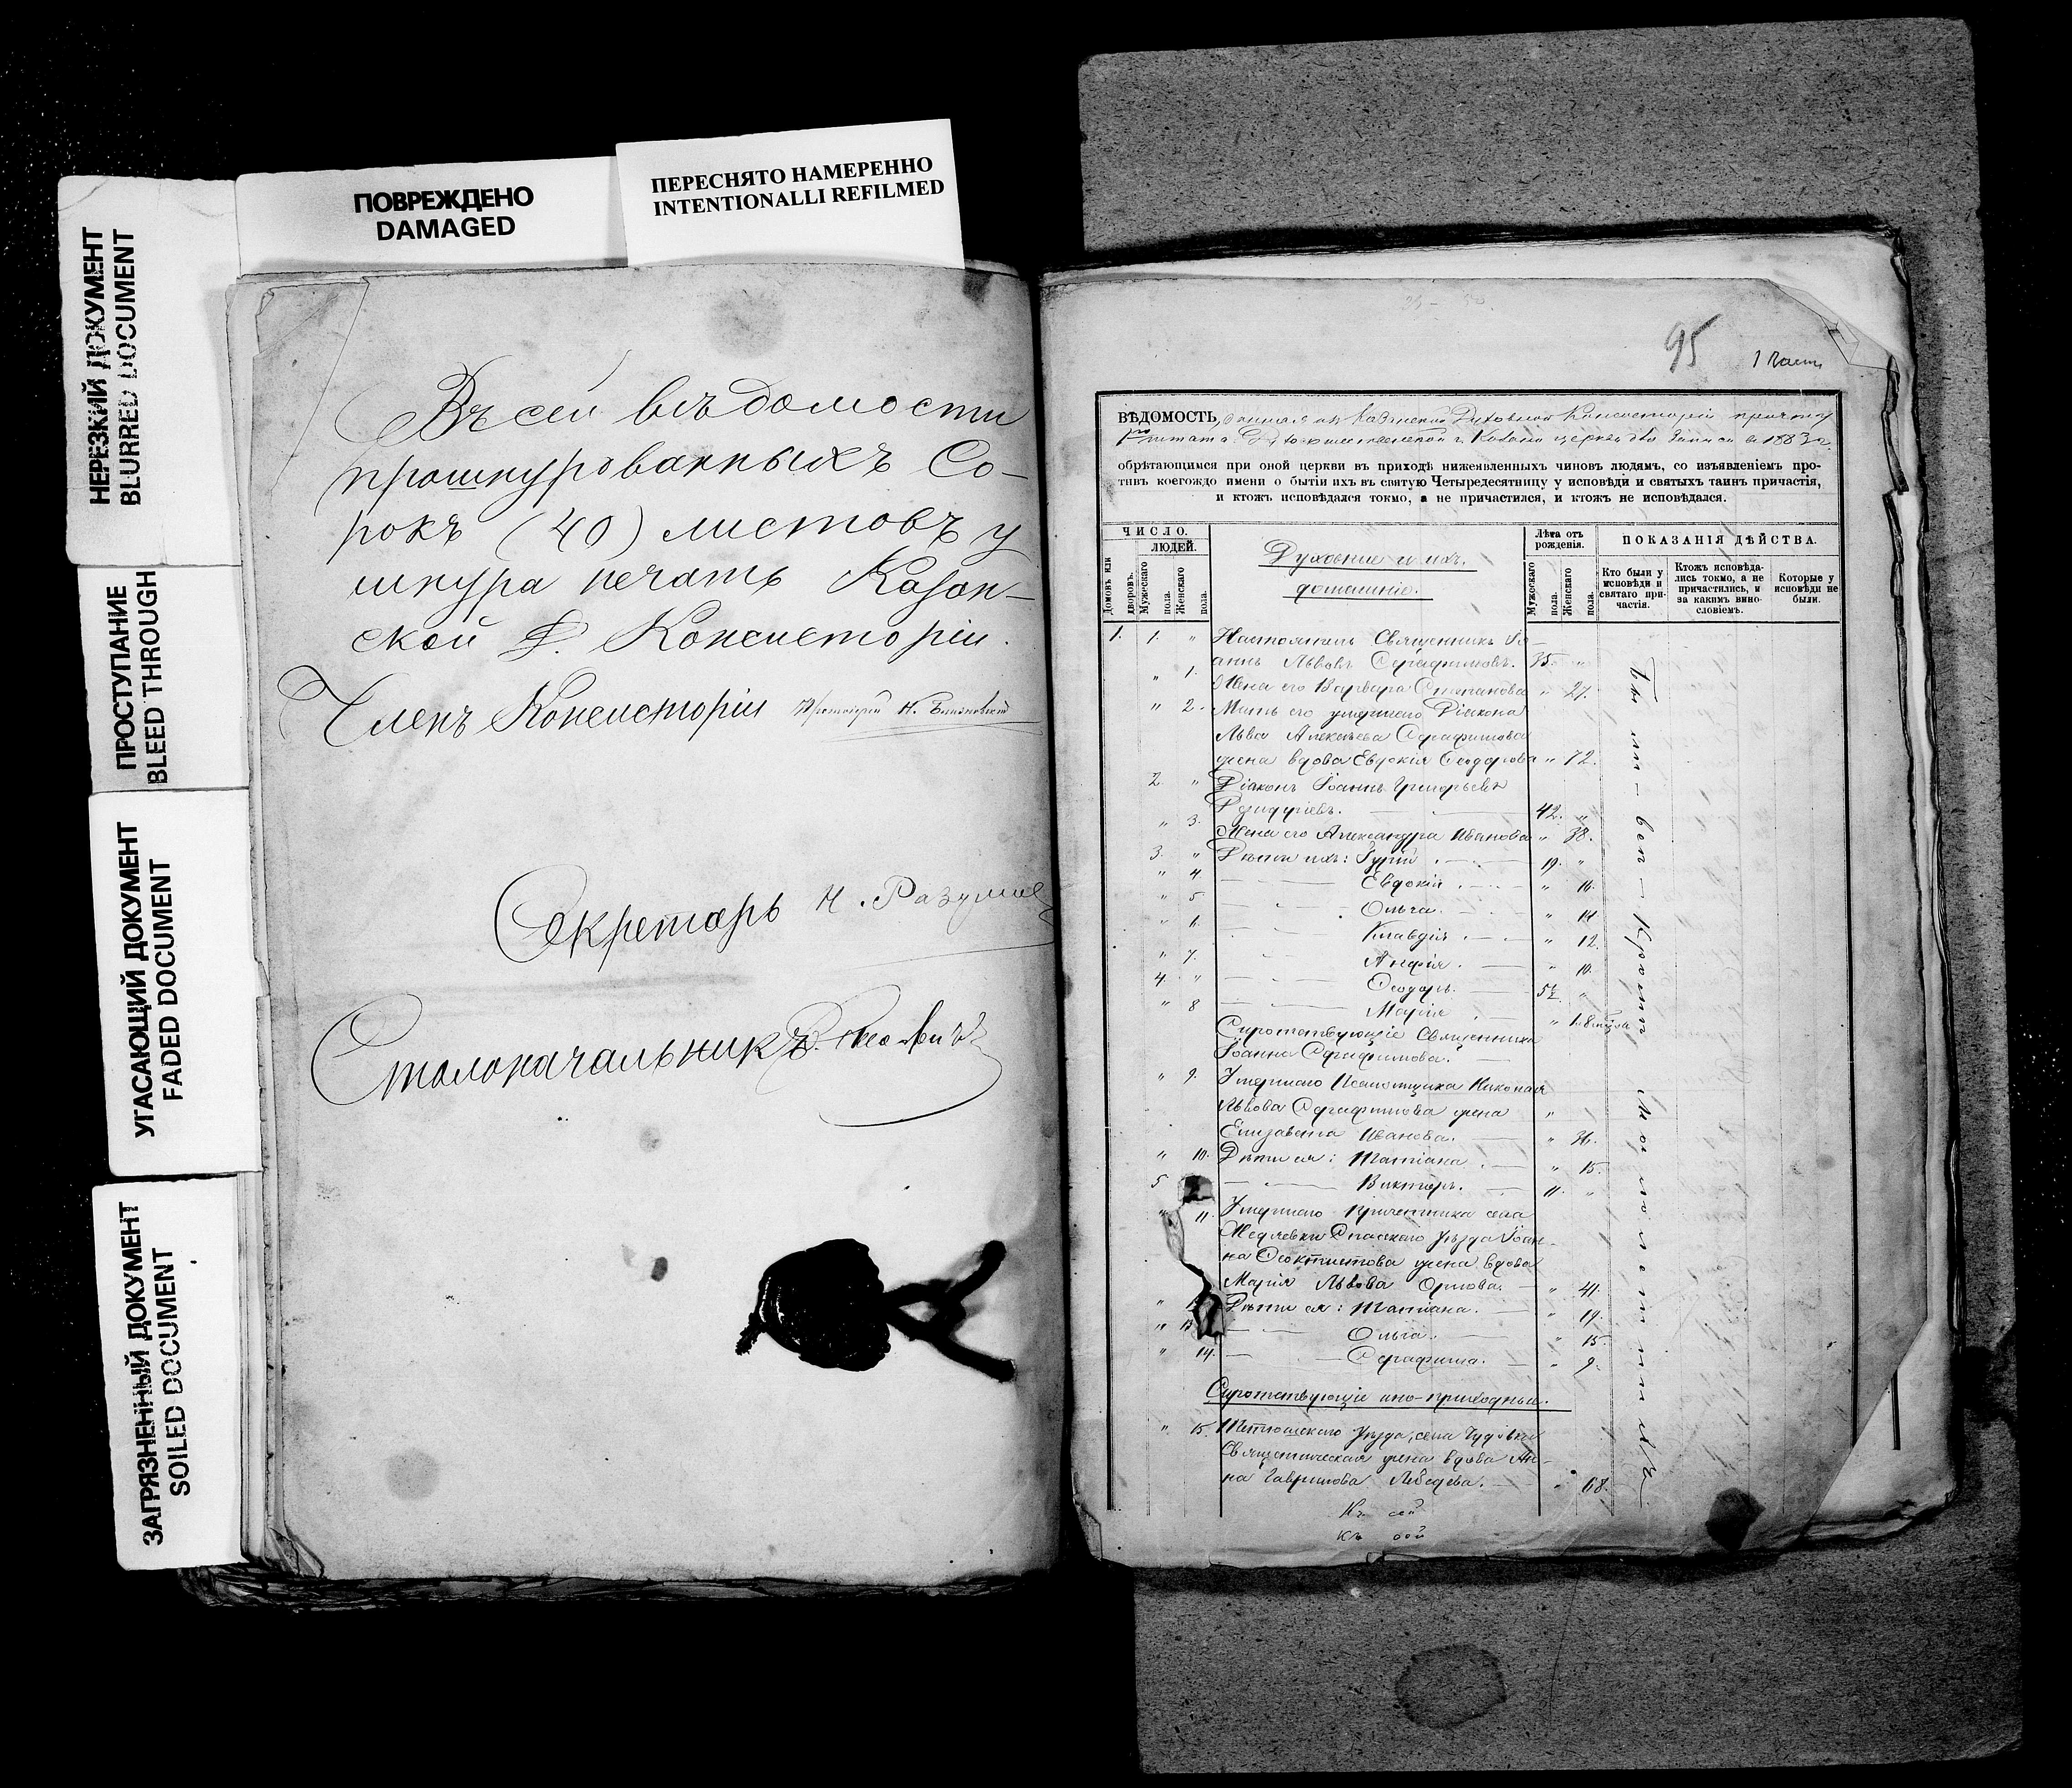 ПОВРЕЖДЕНО
DAMAGED
ПЕРЕСНЯТО НАМЕРЕННО
INTENTIONALLI REFILMED
НЕРЕЗКИЙ ДОКУМЕНТ
BLURRED DOCUMENT
ПРОСТУПАНИЕ
BLEED THROUGH
УГАСАЮЩИЙ ДОКУМЕНТ
FADED DOCUMENT
ЗАГРЯЗНЕННЫЙ ДОКУМЕНТ
SOILED DOCUMENT
Въ сей вѣдомости
прошнурованныхъ Со-
рокъ (40) листовъ у
шнура печать Казан-
ской Д. Консисторіи.
Членъ Консисторіи Протоіерей
Секретарь Н. Разумов
Столоначальникъ
95
1 Часть
ВѢДОМОСТЬ, данная изъ Казанской Духовной Консисторіи причту
г. Казани церкви для записи въ 1883 г.
обрѣтающимся при оной церкви въ приходѣ нижеявленныхъ чиновъ людямъ, со изъявленіемъ про-
тивъ коегождо имени о бытіи ихъ въ святую Четыредесятницу у исповѣди и святыхъ таинъ причастія,
и ктожъ исповѣдался токмо, а не причастился, и ктожъ не исповѣдался.
ЧИСЛО.
ЛЮДЕЙ.
Домовъ или дворовъ.
Мужескаго пола.
Женскаго пола.
Духовные и ихъ
домашніе.
Лѣта отъ рожденія.
Мужескаго пола.
Женскаго пола.
ПОКАЗАНІЯ ДѢЙСТВА.
Кто были у исповѣди и святаго причастія.
Ктожъ исповѣдались токмо, а не причастились, и за какимъ винословіемъ.
Которые у исповѣди не были.
1. 1. " Настоятель Священникъ Іо-
аннъ Львовъ Серафимовъ. 35. "
" 1. Жена его Варвара Степанова " 27.
" 2. Мать его умершаго Діакона
Льва Алексѣева Серафимова
жена вдова Евдокія Ѳеодорова " 72.
2. " Діаконъ Іоаннъ Григорьевъ
42. "
" 3. Жена его Александра Иванова " 38.
3. " Дѣти ихъ: Гурій 19. "
" 4. Евдокія " 16.
" 5 Ольга " 14
" 6. Клавдія " 12.
" 7. Анфія. " 10.
4. " Ѳеодоръ.
" 8 Марія
Сиротствующіе Священника
Іоанна Серафимова.
" 9. Умершаго Псаломщика Николая
Львова Серафимова жена "
Елизавета Иванова. " 36.
" 10. Дѣти ея: Татіана " 15.
5 Викторъ. 11. "
" 11. Умершаго причетника села
Спасскаго уѣзда Іоан-
на Ѳеоктистова жена вдова
Марія Львова Орлова. " 41.
" Дѣти ея: Татіана. " 19.
" 13 Ольга. " 15.
" 14. Серафима. " 9.
Сиротствующіе ино-приходные.
" 15. Тетюшскаго уѣзда, села
Священническая жена вдова Ан-
на Гаврилова Лебедева. " 68.
Къ сей